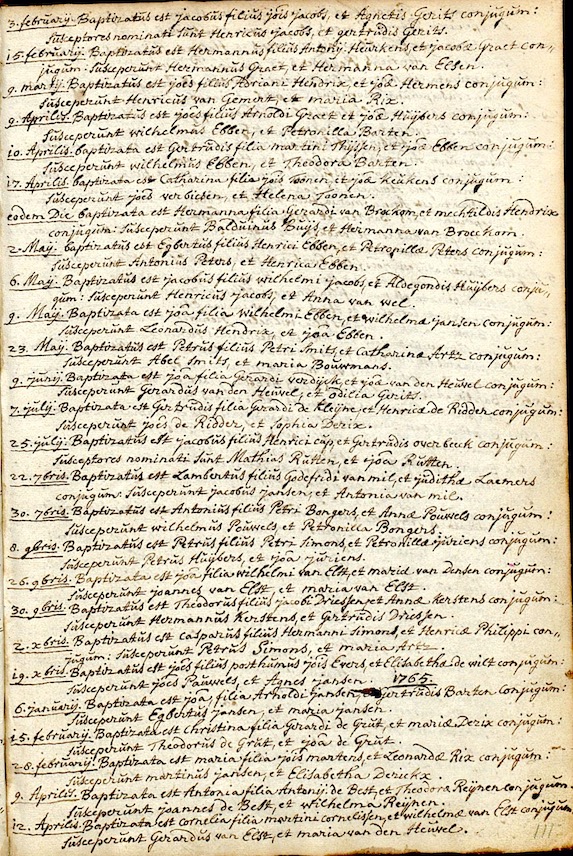 3. februarij. Baptizatus est jacobus filius jois jacobs, et Agnetis Gerits conjugum:
Susceptores nominati sunt Henricus jacobs, et gertrudis Gerits.
15. februarij. Baptizatus est Hermannus filius Antonij Heurkens, et jacobæ Graet con,,
jugum: Susceperunt Hermannus Graet, et Hermanna van Elsen.
9. martij. Baptizatus est joes filius Adriani Hendrix, et joæ Hermens conjugum:
Susceperunt Henricus van Gemert, et maria Rix.
9. Aprilis. Baptizatus est joes filius Arnoldi Graet et joæ Huijbers conjugum:
Susceperunt wilhelmus Ebben, et Petronilla Barten.
10. Aprilis. baptizata est Gertrudis filia martini Thijssen, et joæ Ebben conjugum:
Susceperunt wilhelmus Ebben, et Theodora Barten.
17. Aprilis. baptizata est Catharina filia jois Toonen, et joæ Keukens conjugum:
Susceperunt joes verbiesen, et Helena Toonen.
eodem Die baptizata est Hermanna filia Gerardi van Brockom, et mechtildis Hendrix
conjugum: Susceperunt Balduinus Buijs, et Hermanna van Broeckom.
2. Maij. baptizatus est Egbertus filius Henrici Ebben, et Petronillæ Peters conjugum:
Susceperunt Antonius Peters, et Henrica Ebben.
6. Maij. Baptizatus est jacobus filius wilhelmi jacobs, et Aldegondis Huijbers conju,,
gum: Susceperunt Henricus jacobs, et Anna van wel.
9. Maij. Baptizata est joa filia wilhelmi Ebben, et wilhelmæ jansen conjugum:
Susceperunt Leonardus Hendrix, et joa Ebben.
23. Maij. Baptizatus est Petrus filius Petri Smits, et Catharinæ Artz conjugum:
Susceperunt Abel Smits, et maria Bouwmans.
9. junij. Baptizata est joa filia Gerardi verdijck, et joæ van den Heuvel conjugum:
Susceperunt Gerardus van den Heuvel, et odilia Gerits.
7. julij. Baptizata est Gertrudis filia gerardi de Kleijne, et Henricæ de Ridder conjugum:
Susceperunt joes de Ridder, et Sophia Derix.
25. julij. Baptizatus est jacobus filius Henrici cup, et Gertrudis overbeeck conjugum:
Susceptores nominati sunt Mathias Rutten, et joa Rutten.
22. 7bris. Baptizatus est Lambertus filius Godefridi van mil, et judithæ Laemers
conjugum: Susceperunt jacobus jansen, et Antonia van mil.
30. 7bris. Baptizatus est Antonius filius Petri Bongers, et Annæ Pouwels conjugum:
Susceperunt wilhelmus Pouwels, et Petronilla Bongers.
8. 9bris. Baptizatus est Petrus filius Petri Simons, et Petronillæ jurriens conjugum:
Susceperunt Petrus Huijbers, et joa juriens.
26. 9bris. Baptizata est joa filia wilhelmi van Elst, et mariæ van Densen conjugum:
Susceperunt joannes van Elst, et maria van Elst.
30. 9bris. Baptizatus est Theodorus filius jacobi Driessen, et Annæ Kerstens conjugum:
Susceperunt Hermannus Kerstens, et Gertrudis Driesen.
2. xbris. Baptizatus est casparus filius Hermanni Simons, et Henricæ Philippi con,,
jugum: Susceperunt Petrus Simons, et maria Artz.
19. xbris. Baptizatus est joes filius posthumus jois Evers, et Elisabethæ de wilt conjugum:
Susceperunt joes Pauwels, et Agnes jansen. 1765.
6. januarij. Baptizata est joa filia Arnoldi jansen et Gertrudis Barten conjugum:
Susceperunt Egbertus jansen, et maria jansen.
15. februarij. Baptizata est christina filia Gerardi de Grut, et mariæ Derix conjugum:
Susceperunt Theodorus de Grut, et joa de Grut.
28. februarij. Baptizata est maria filia jois martens, et Leonardæ Rix conjugum:
Susceperunt martinus jansen, et Elisabetha Derickx.
9. Aprilis. Baptizata est Antonia filia Antonij de Best, et Theodoræ Reijnen conjugum.
Susceperunt joannes de Best, et wilhelma Reijnen.
12. Aprilis. Baptizata est cornelia filia martini cornelissen, et wilhelmæ van Elst conjugum
Susceperunt Gerardus van Elst, et maria van den Heuvel.
111.